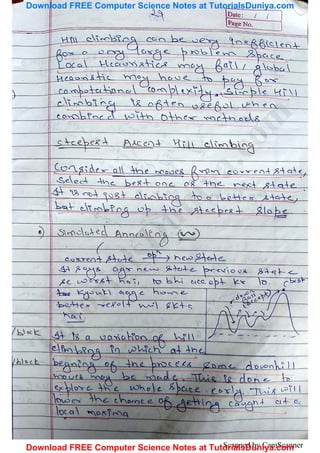 Download FREE Computer Science Notes at TutorialsDuniya.com
29
Date: / /
Page No.
Hill climbing can be very inefficient
for a very large problem space.
Local Heuristics may fail, global
Heuristic may have to pay for
computational complexity. Simple Hill
climbing is often useful when
combined with other methods
steepest Ascent Hill climbing
Consider all the moves from current state,
Select the best one as the next state.
It is not just climbing to a better state,
but climbing up the steepest slope.
Simulated Annealing
current state opn new state
It says agr new state previous state
se worst hai, to bhi accept kr lo,
kyouki agge home
better result mil skta
hai
best
/block
It is a variation of hill
climbing in which at the
/block
begning of the process some downhill
moves may be made. This is done to
explore the whole space early. This will
lower the chance of getting caught at a
local maxima
Scanned by CamScanner
Download FREE Computer Science Notes at TutorialsDuniya.com